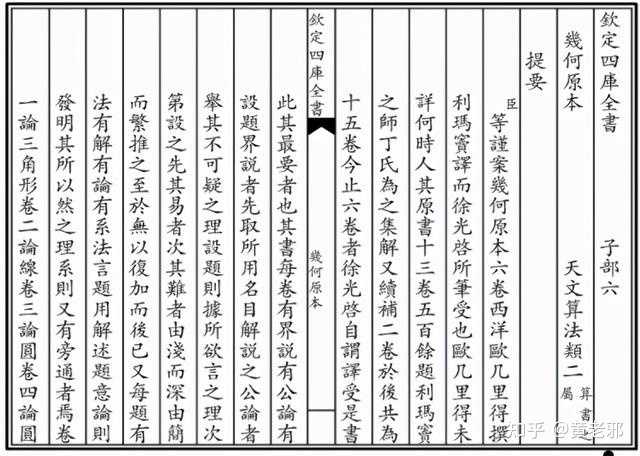 欽定四庫全書 子部六
幾何原本 天文算法類二 算書之屬
提要
臣等謹案幾何原本六卷西洋歐几里得撰
利瑪竇譯而徐光啓所筆受也歐几里得未
詳何時人其原書十三卷五百餘題利瑪竇
之師丁氏為之集解又續補二卷於後共為
十五卷今止六卷者徐光啓自謂譯受是書
欽定四庫全書 幾何原本
此其最要者也其書每卷有界說有公論有
設題界說者先取所用名目解說之公論者
舉其不可疑之理設題則據所欲言之理次
第設之先其易者次其難者由淺而深由簡
而繁推之至於無以復加而後已又每題有
法有解有論有系法言題用解述題意論則
發明其所以然之理系則又有旁通者焉卷
一論三角形卷二論線卷三論圓卷四論圓
知乎 @黄老邪